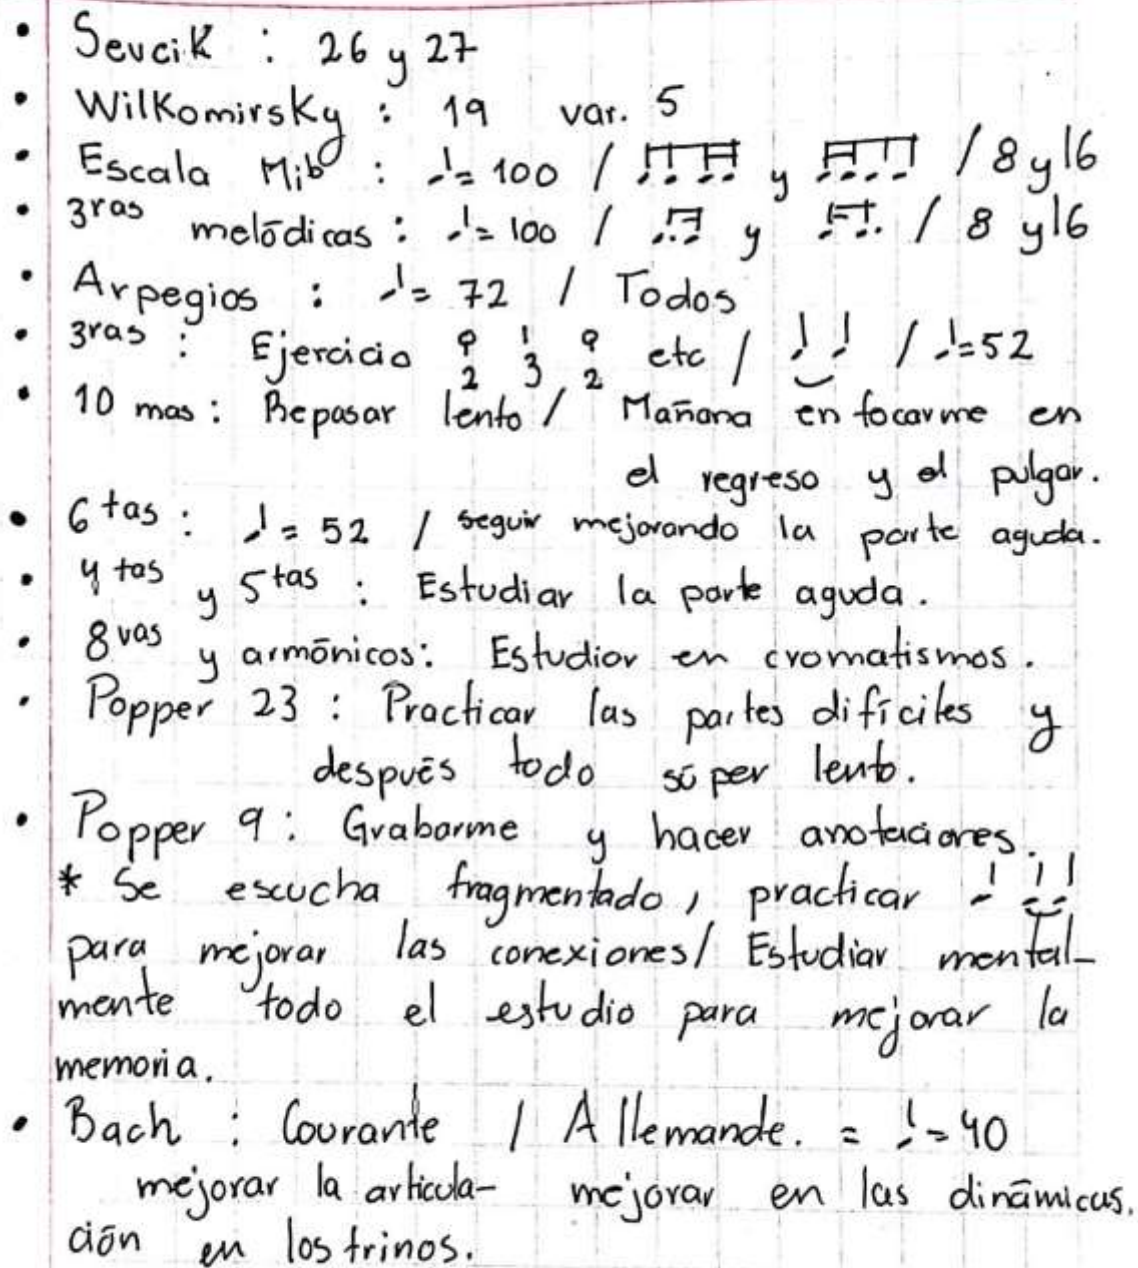 • Sevcik : 26 y 27
• Wilkomirsky : 19 var. 5
• Escala Mib : ♩= 100 / ♬♬ y ♬♬ / 8 y 16
• 3ras melódicas : ♩= 100 / ♫ y ♫. / 8 y 16
• Arpegios : ♩= 72 / Todos
• 3ras : Ejercicio ϙ 1 ϙ etc / ♩‿♩ / ♩=52
2 3 2
• 10 mas : Repasar lento / Mañana enfocarme en
el regreso y el pulgar.
• 6 tas : ♩= 52 / seguir mejorando la parte aguda.
• 4 tas y 5tas : Estudiar la parte aguda.
• 8vas y armónicos: Estudiar en cromatismos.
• Popper 23 : Practicar las partes difíciles y
después todo súper lento.
• Popper 9 : Grabarme y hacer anotaciones.
* Se escucha fragmentado, practicar ♩ ♩‿♩
para mejorar las conexiones/ Estudiar mental-
mente todo el estudio para mejorar la
memoria.
• Bach : Courante / Allemande. = ♩=40
mejorar la articula- mejorar en las dinámicas.
ción en los trinos.